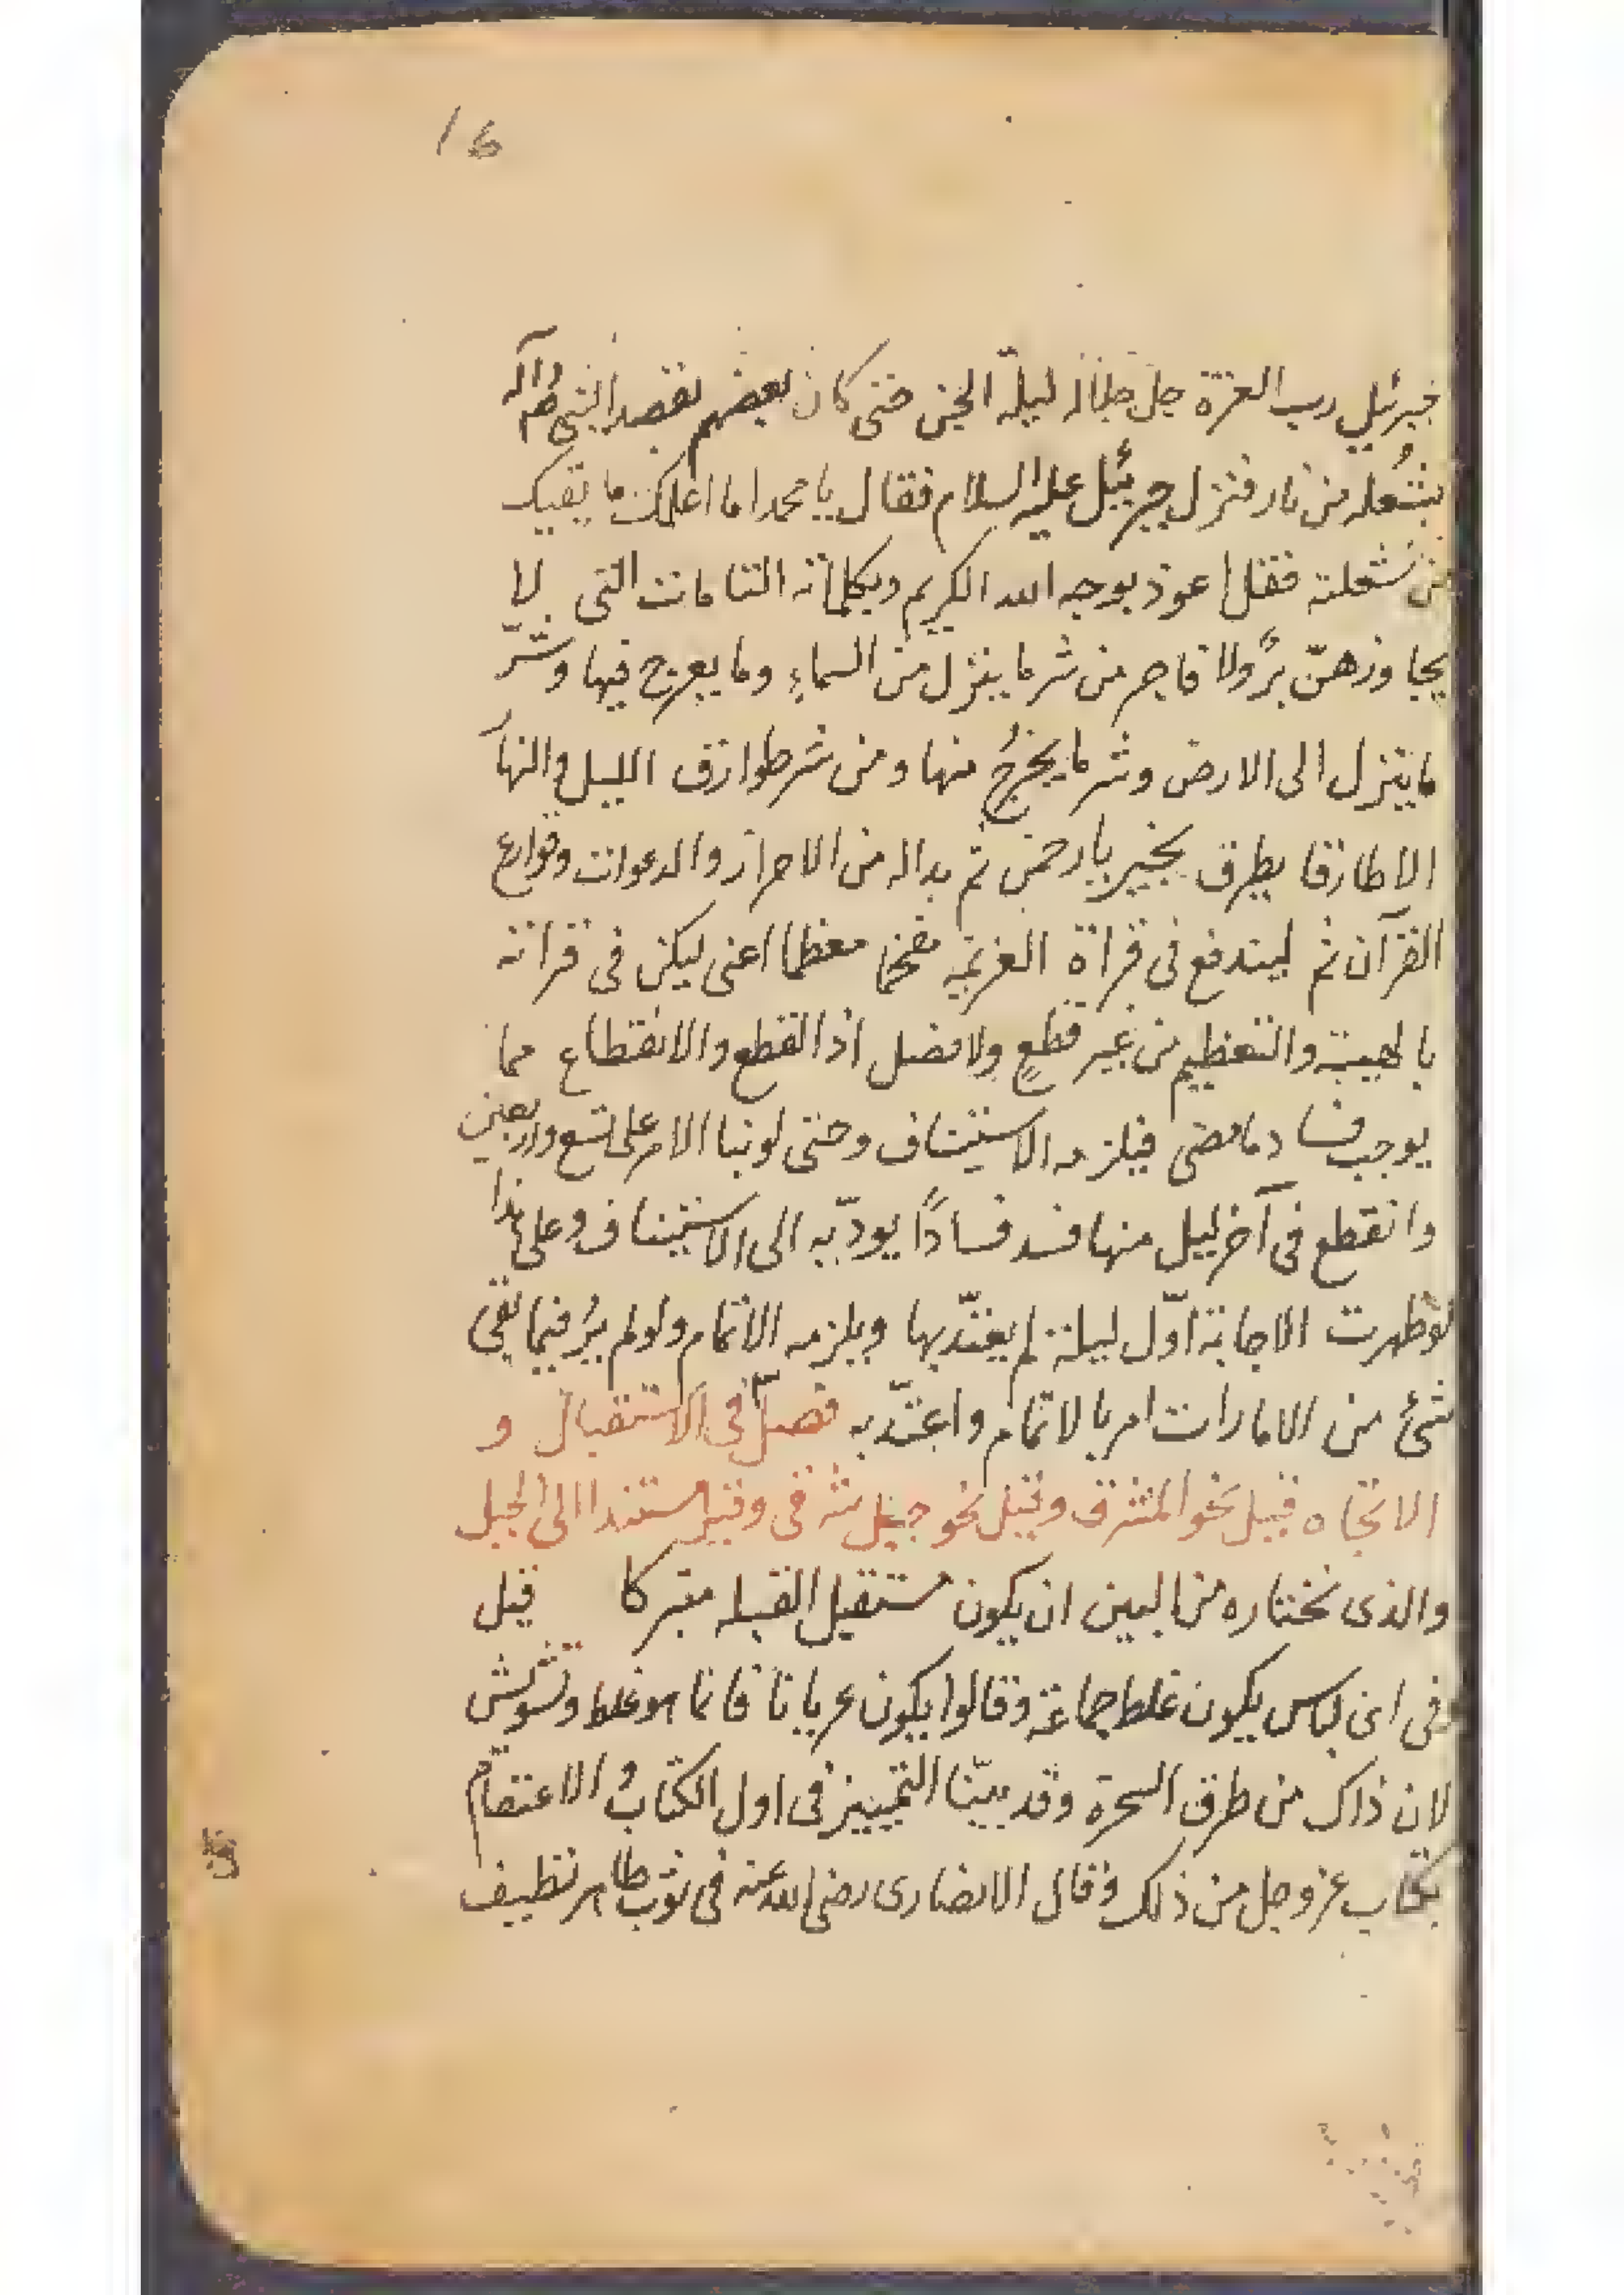 16
جبرئيل رب العزة جل جلاله ليلة الجن حتى كان بعضهم يقصد النبي ص و آله
بشُعله من نار فنزل جبرئيل عليه السلام فقال يا محمد اما اعلمك ما يقيك
من شعلته فقل اعوذ بوجه الله الكريم وبكلماته التامات التى لا
يجاوزهنّ برٌ ولا فاجر من شر ما ينزل من السماءِ وما يعرج فيها وشرّ
ما ينزل الى الارض وشر ما يخرجُ منها ومن شر طوارق الليل والنهآ
الا طارقا يطرق بخير يا رحمن ثم بداله من الاحراز والدعوات وقوارع
القرآن ثم ليندفع فى قراة العزيمه مفخما معظما اعنى ليكن فى قراته
بالهيبة والتعظيم من غير قطعٍ ولا فصل اذ القطع والانقطاع مما
يوجب فساد ما مضى فيلزمه الاستيناف وحتى لو بنا الامر على تسع واربعين
وانقطع فى آخر ليل منها فسد فسادًا يودّيه الى الاستيناف وعلى هذا
لو ظهرت الاجابة اوّل ليلة لم يعتدّ بها ويلزمه الاتمام ولو لم يرُ فيما بقى
شئ من الامارات امر بالاتمام واعتدّ به فصلٌ فى الاستقبال و
الاتجاه قيل نحو المشرق وقيل نحو جبل شرقى وقيل مستندا الى الجبل
والذى نختاره من البين ان يكون مستقبل القبله متبركا قيل
وفى اى لباس يكون غلط جماعة وقالوا يكون عريانا قائما هو غلط وتشويش
لان ذاك من طرق السحرة وقد بينّا التمييز فى اول الكتاب و الاعتقام
بكتاب عز وجل من ذلك وقال الانصارى رضى الله عنه فى ثوب طاهر نظيف